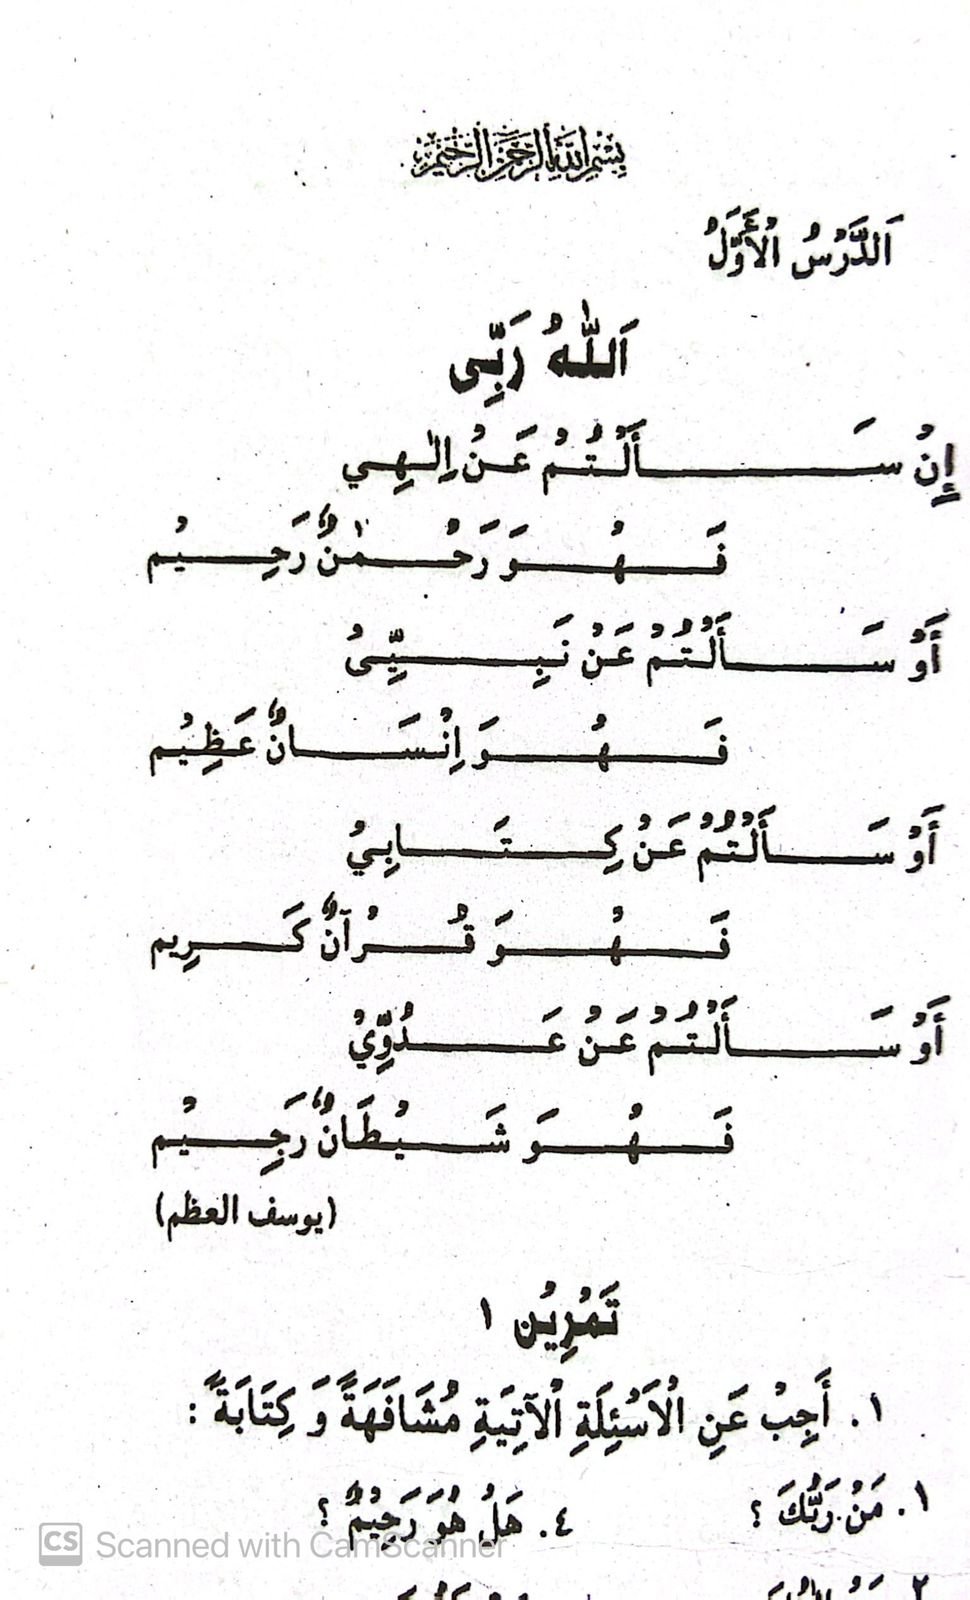 بِسْمِ اللهِ الرَّحْمٰنِ الرَّحِيْمِ
اَلدَّرْسُ الْأَوَّلُ
اَللّٰهُ رَبِّى
إِنْ سَأَلْتُمْ عَنْ اِلٰهِي
فَهُوَ رَحْمٰنٌ رَحِيْم
أَوْ سَأَلْتُمْ عَنْ نَبِيِّىْ
فَهُوَ اِنْسَانٌ عَظِيْم
أَوْ سَأَلْتُمْ عَنْ كِتَابِيْ
فَهُوَ قُرْآنٌ كَرِيم
أَوْ سَأَلْتُمْ عَنْ عَدُوِّيْ
فَهُوَ شَيْطَانٌ رَجِيْم
(يوسف العظم)
تَمْرِيْن ١
١. أَجِبْ عَنِ الْاَسْئِلَةِ الْآتِيَةِ مُشَافَهَةً وَ كِتَابَةً :
١. مَنْ رَبُّكَ ؟ ٤. هَلْ هُوَ رَحِيْمٌ ؟
٢
CS Scanned with CamScanner